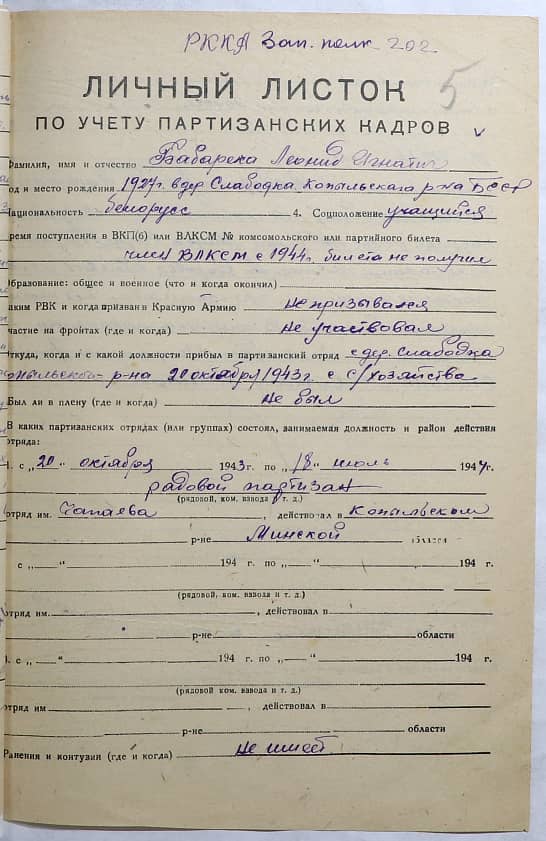 РККА Зап. полк 202
5
ЛИЧНЫЙ ЛИСТОК
ПО УЧЕТУ ПАРТИЗАНСКИХ КАДРОВ
Фамилия, имя и отчество Бабарека Леонид Игнатич
од и место рождения 1927г. в дер. Слабодка Копыльскага р-на БССР
Национальность белорусс 4. Соцположение учащийся
ремя поступления в ВКП(б) или ВЛКСМ № комсомольского или партийного билета
член ВЛКСМ с 1944г. билета не получил
Образование: общее и военное (что и когда окончил)
аким РВК и когда призван в Красную Армию не призывался
частие на фронтах (где и когда) не участвовал
Откуда, когда и с какой должности прибыл в партизанский отряд с дер. Слабодка
опыльской р-на 20 октября 1943г. с с/хозяйства
Был ли в плену (где и когда) не был
В каких партизанских отрядах (или группах) состоял, занимаемая должность и район действия
отряда:
1. с „20" октября 1943 г. по „18" июль 1944г.
радовой партизан
(рядовой, ком. взвода и т. д.)
отряд им. Чапаева , действовал в Копыльском
р-не Минской области
. с „ —" 194 г. по „ —" 194 г.
(рядовой, ком. взвода и т. д.)
отряд им. , действовал в
р-не области
3. с „ —" 194 г. по „ —" 194 г.
(рядовой ком. взвода и т. д.)
отряд им , действовал в
р-не области
Ранения и контузии (где и когда) не имеет